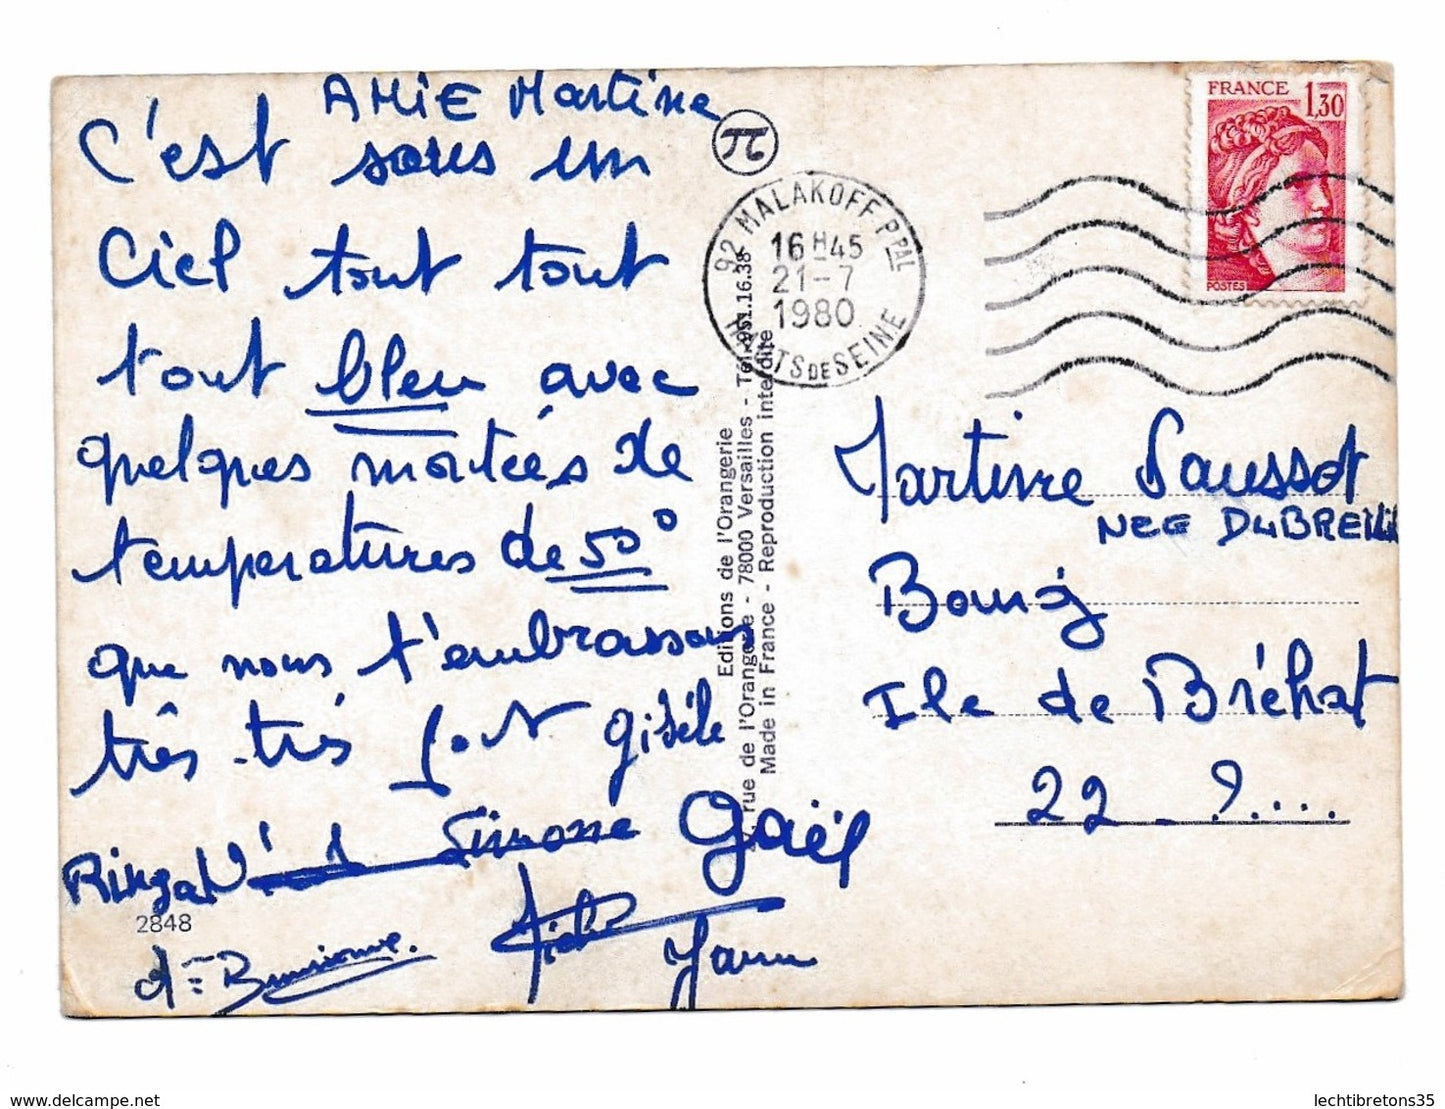 AMIE Martine
C'est sous un
Ciel tout tout
tout bleu avec
quelques montées de
températures de 50°
que nous t'embrassons
très très fort Gisèle
Simone Gaël
Yann
2848
Editions de l'Orangerie
rue de l'Orangerie - 78000 Versailles - Tél. 951.16.38
Made in France - Reproduction interdite
92 MALAKOFF PPAL
16H45
21-7
1980
HTS DE SEINE
FRANCE 1,30
POSTES
Martine Saussot
NEE DUBREUIL
Bourg
Ile de Bréhat
22 - ?....
lechtibretons35